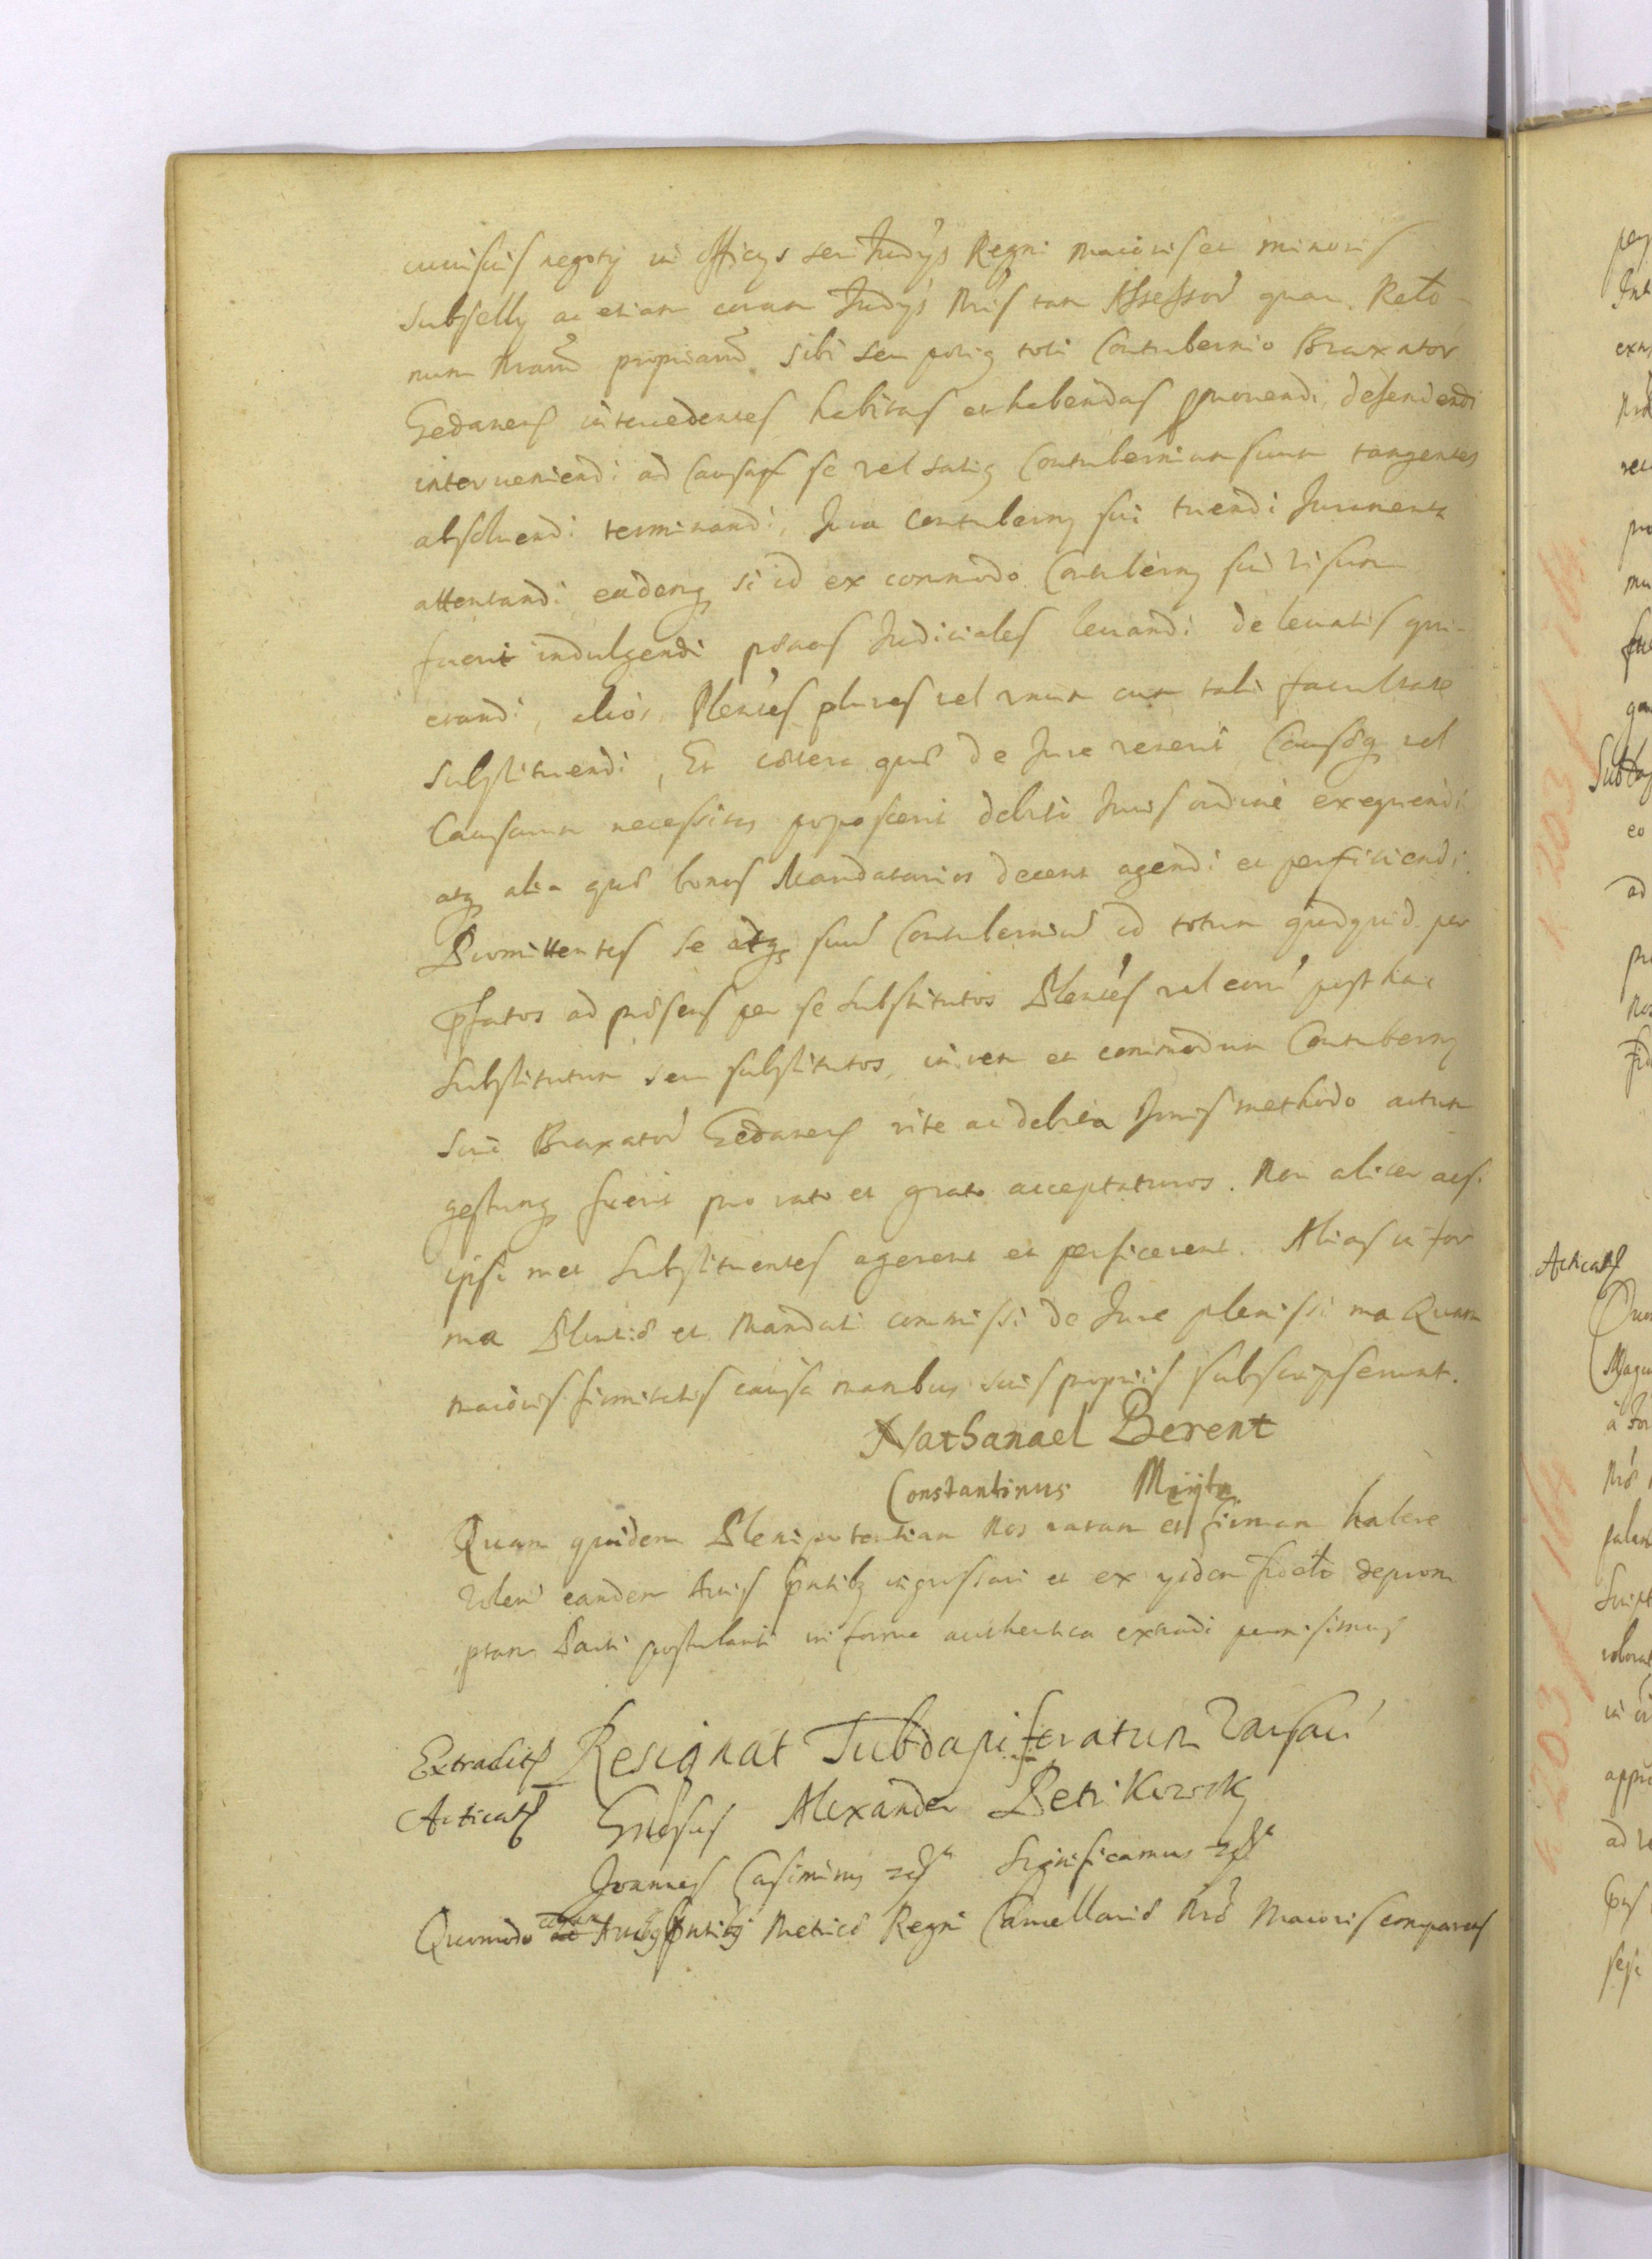 cuiuscis negoty in officys seu Judys Regni maioris et minoris
subselly ac etiam coram Judys Nris tam Assessor quam Relõ-
num Nrarũ propriarũ sibi seu potig toti Contubernio Braxator
Gedanens intercedentes habitas et habendas pmouendi, defendendi
interueniendi ad Causas se vel totig Contubernium suum tangentes
absoluendi terminandi, Jura Contuberny sui tuendi Juramenta
attentandi eademq si id ex commodo Contuberny sui visum
fuerit indulgendi poenas Judiciales leuandi de leuatis qui-
etandi, alios Plenies plures vel vnum cum tali facultate
substituendi, Et coetera quae de Jure venerit Causaeq vel
Causarum necessitas poposcerit debito Juris ordine exequendi
atq alia quae bonos Mandatarios decent agendi et perficiendi.
Promittentes se atq suũ Contuberniũ id totum quidquid per
pfatos ad praesens per se substitutos Plenies vel eorũ post hac
substitutum seu substitutos, in rem et commodum Contuberny
sui Braxatorũ Gedanens rite ac debita Juris methodo actum
gestumq fuerit pro rato et grato accepturos. Non aliter acsi
ipsi met substituentes agerent et perficerent. Alias in for
ma Plentiae et Mandati commissi de Jure plenissi ma Quam
maioris firmitatis causa manibus suis propriis subscripserunt.
Nathanael Berent
Constantinus
Quam quidem Plenipotentiam Nos ratam et firmam habere
volen eandem Actis pntibq ingrossari et ex ysdem fidelr deprom
ptam Parti postulanti in forma authentica extradi permisimus
Extradits Resignat Subdapiferatum Varsaui
Acticats Gnosus Alexander Petrikowsky
Joannes Casimirus Significamus
Quomodo coram Actisq pntibq Metrices Regni Cancellariae Nrae Maioris comparens